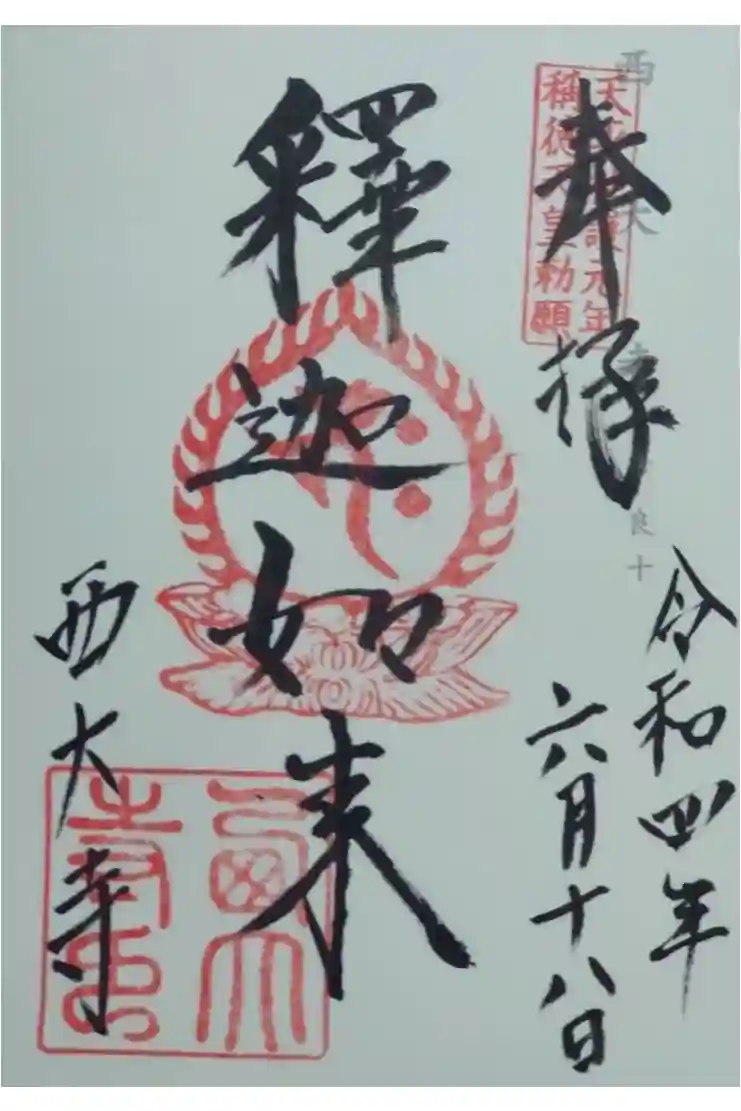 奉拝
令和四年
六月十八日
天平神護元年
稱徳天皇勅願
釋迦如来
西大寺